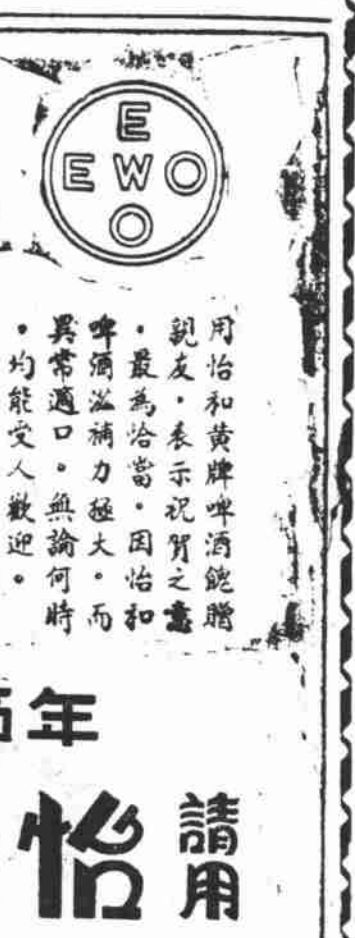 E
E W O
O
用怡和黄牌啤酒餽贈
親友・表示祝賀之意
・最為恰當・因怡和
啤酒滋補力極大。而
異常適口。無論何時
・均能受人歡迎。
年
請用
怡